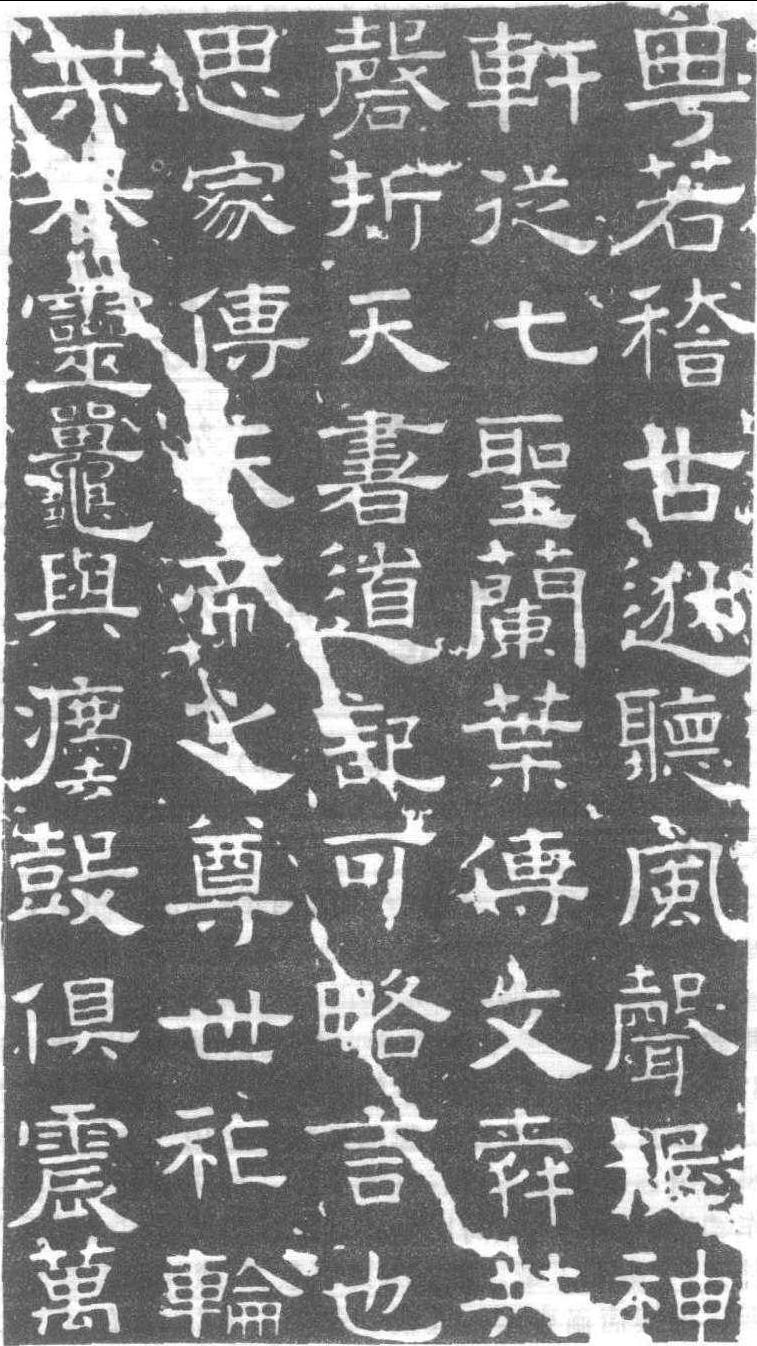 粤若稽古逖聽風聲握神
軒從七聖蘭葉傳文舜共
磬折天書道記可略言也
思家傳帝之尊世祚輪
靈鼉與鼓俱震萬